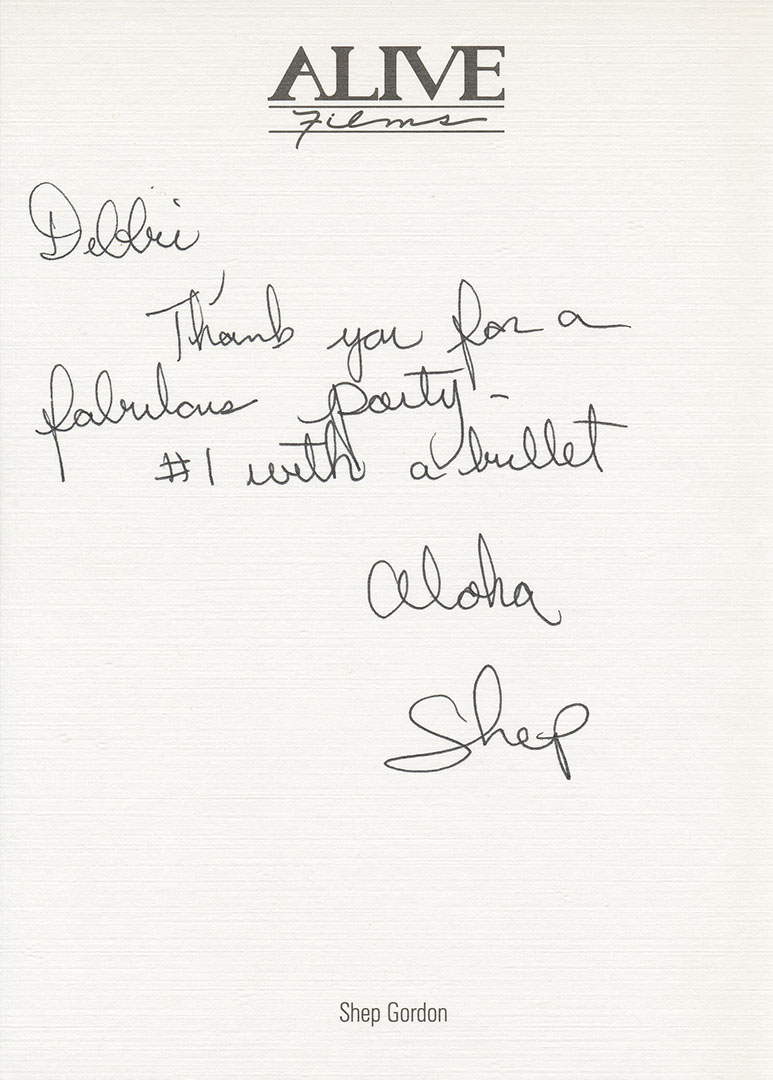 ALIVE
Films
Debbie
Thank you for a
fabulous party -
#1 with a bullet
Aloha
Shep
Shep Gordon